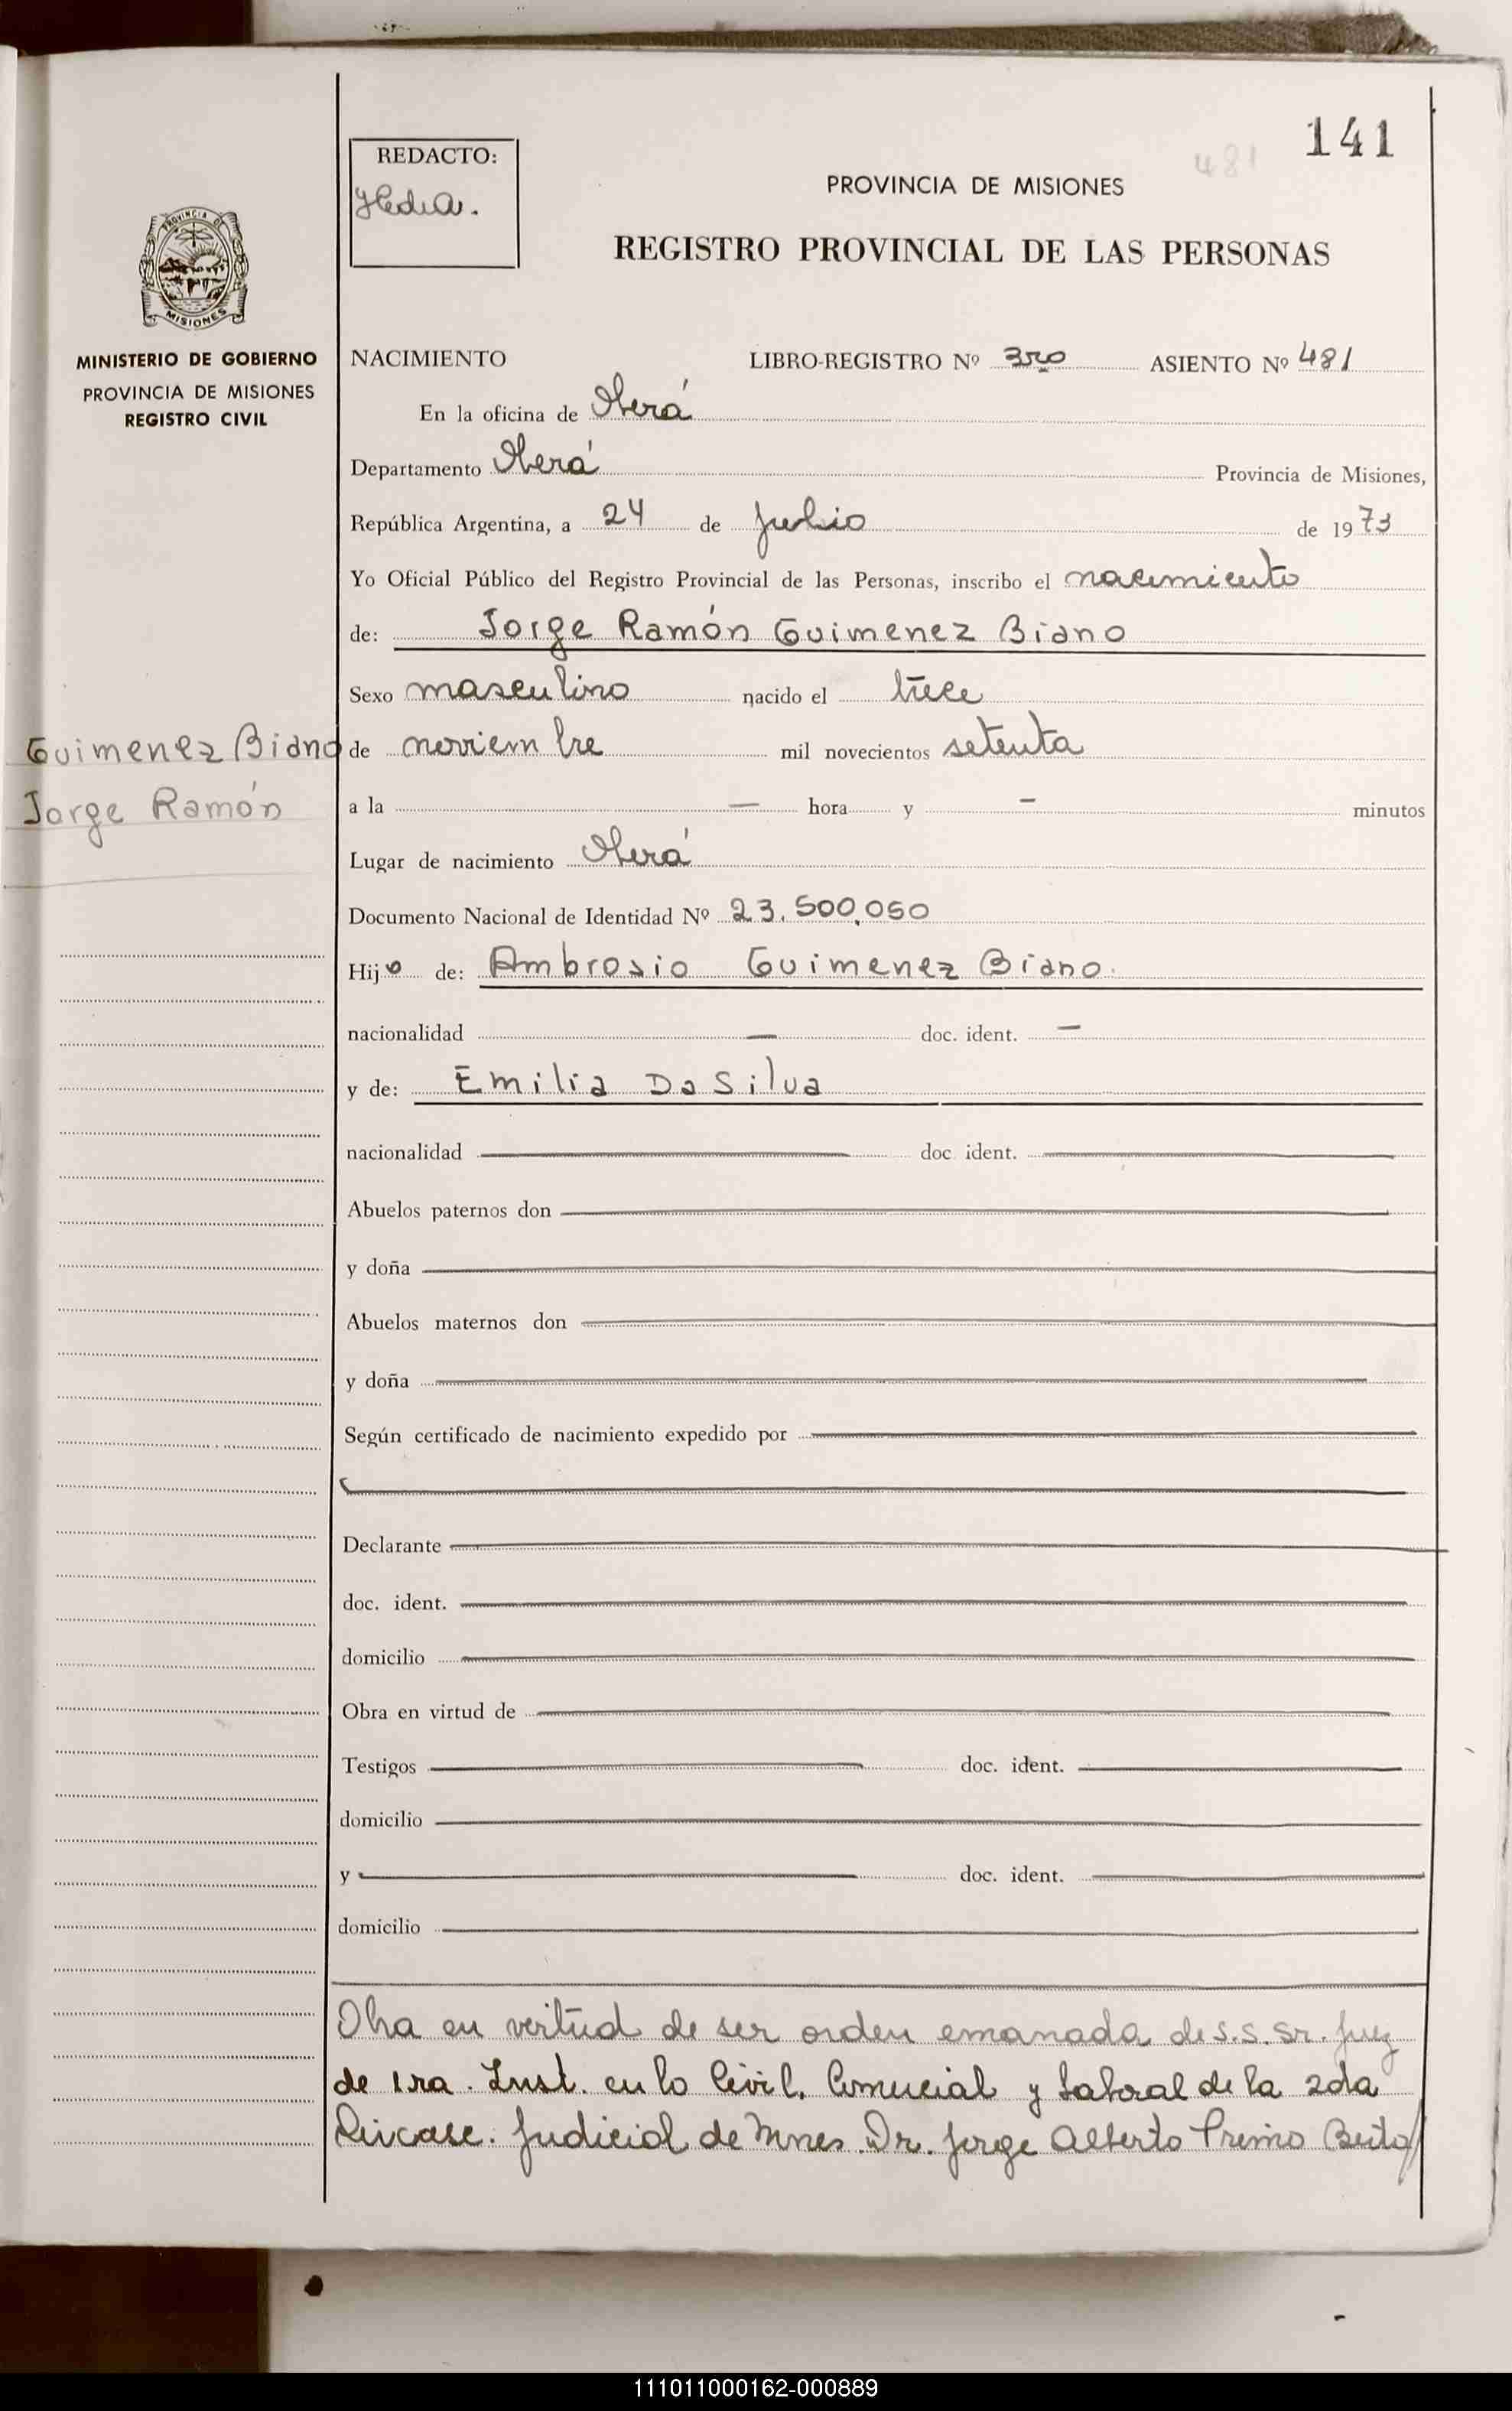 141
481
REDACTO:
PROVINCIA DE MISIONES
REGISTRO PROVINCIAL DE LAS PERSONAS
PROVINCIA DE
MISIONES
MINISTERIO DE GOBIERNO
PROVINCIA DE MISIONES
REGISTRO CIVIL
NACIMIENTO LIBRO-REGISTRO Nº 3ro ASIENTO Nº 481
En la oficina de Oberá
Departamento Oberá Provincia de Misiones,
República Argentina, a 24 de Julio de 1973
Yo Oficial Público del Registro Provincial de las Personas, inscribo el nacimiento
de: Jorge Ramón Guimenez Biano
Sexo masculino nacido el trece
Guimenez Biano
Jorge Ramón
de noviembre mil novecientos setenta
a la — hora y — minutos
Lugar de nacimiento Oberá
Documento Nacional de Identidad Nº 23.500.050
Hijo de: Ambrosio Guimenez Biano.
nacionalidad — doc. ident. —
y de: Emilia Da Silva
nacionalidad doc. ident.
Abuelos paternos don
y doña
Abuelos maternos don
y doña
Según certificado de nacimiento expedido por
Declarante
doc. ident.
domicilio
Obra en virtud de
Testigos doc. ident.
domicilio
y doc. ident.
domicilio
Obra en virtud de ser orden emanada de S.S. Sr. Juez
de 1ra. Inst. en lo Civil, Comercial y Laboral de la 2da
Circusc. Judicial de Mnes Dr. Jorge Alberto Primo
111011000162-000889